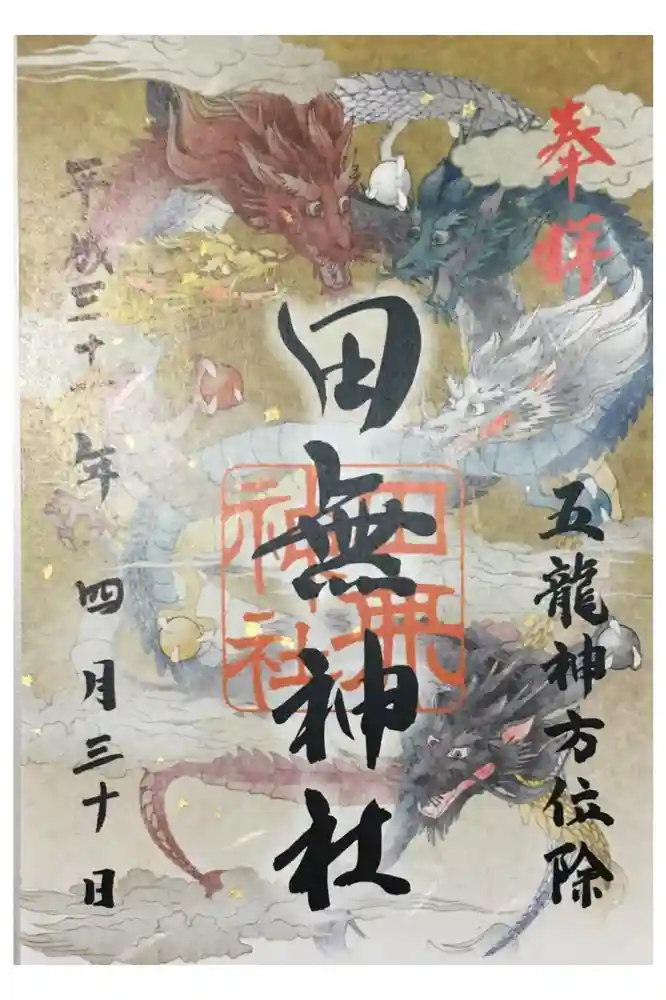 奉拝
五龍神方位除
田無神社
田無
神社
平成三十一年四月三十日